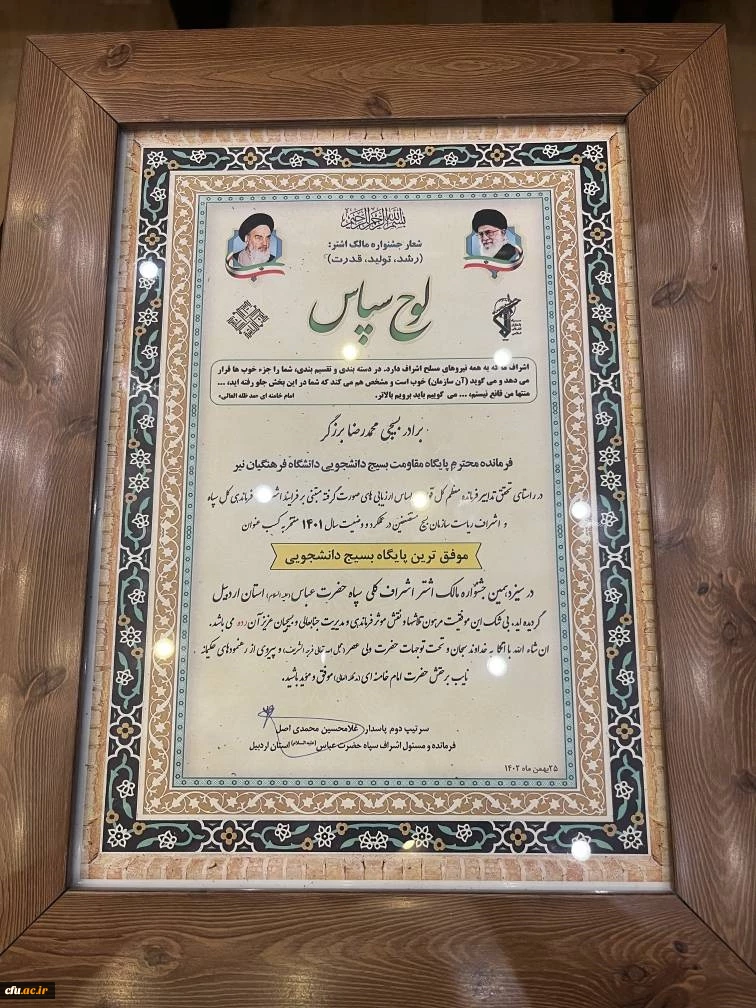 بسم الله الرحمن الرحیم
شعار جشنواره مالک اشتر:
(رشد، تولید، قدرت)
لوح سپاس
اشراف ما که به همه نیروهای مسلح اشراف دارد. در دسته بندی و تقسیم بندی، شما را جزء خوب ها قرار
می دهد و می گوید (آن سازمان) خوب است و مشخص هم می کند که شما در این بخش جلو رفته اید، ...
منتها من قانع نیستم، ... می گوییم باید برویم بالاتر.
امام خامنه ای «مد ظله العالی»
برادر بسیجی محمدرضا برزگر
فرمانده محترم پایگاه مقاومت بسیج دانشجویی دانشگاه فرهنگیان نیر
در راستای تحقق تدابیر فرمانده معظم کل اساس ارزیابی های صورت گرفته مبتنی بر فرآیند فرماندهی کل سپاه
و اشراف ریاست سازمان بسیج مستضعفین در عملکرد و وضعیت سال ۱۴۰۱ مفتخر به کسب عنوان
موفق ترین پایگاه بسیج دانشجویی
در سیزدهمین جشنواره مالک اشتر اشراف کلی سپاه حضرت عباس (علیه السلام) استان اردبیل
گردیده اید، بی شک این موفقیت مرهون تلاشها و نقش موثر فرماندهی و مدیریت جنابعالی و بسیجیان عزیز آن رده می باشد.
ان شاء الله با اتکا به خداوند سبحان و تحت توجهات حضرت ولی عصر (عجل الله تعالی فرجه الشریف) و پیروی از رهنمودهای حکیمانه
نایب برحقش حضرت امام خامنه ای (مدظله العالی) موفق و موید باشید.
سرتیپ دوم پاسدار غلامحسین محمدی اصل
فرمانده و مسئول اشراف سپاه حضرت عباس (علیه السلام) استان اردبیل
۲۵بهمن ماه ۱۴۰۲
cfu.ac.ir